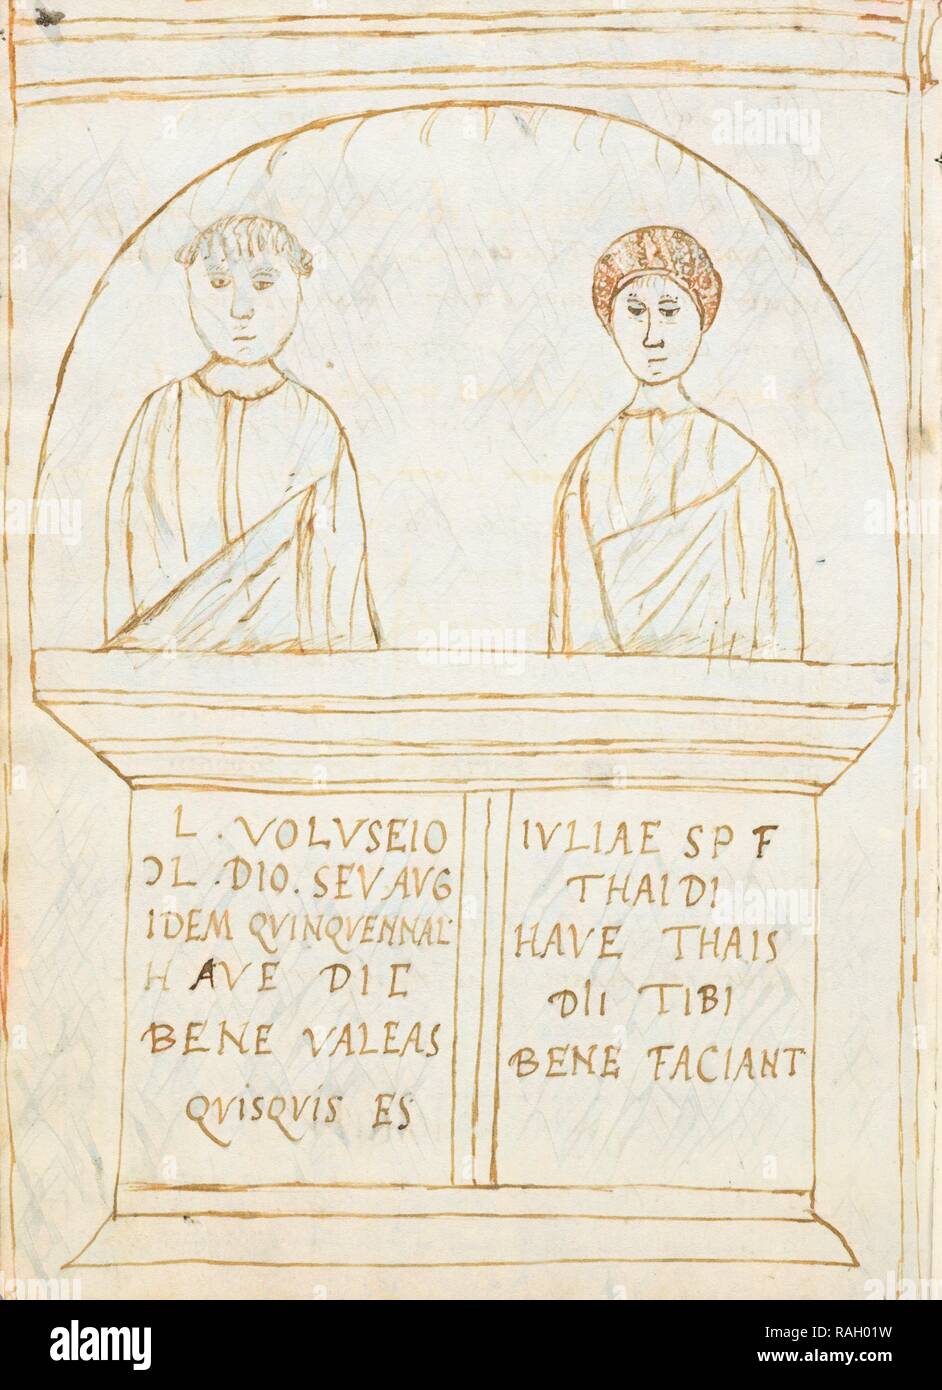 L . VOLVSEIO
ƆL . DIO . SEV . AVG
IDEM QVINQVENNAL
HAVE DIE
BENE VALEAS
QVISQVIS ES
IVLIAE SP F
THAIDI
HAVE THAIS
DII TIBI
BENE FACIANT
alamy
Image ID: RAH01W
www.alamy.com